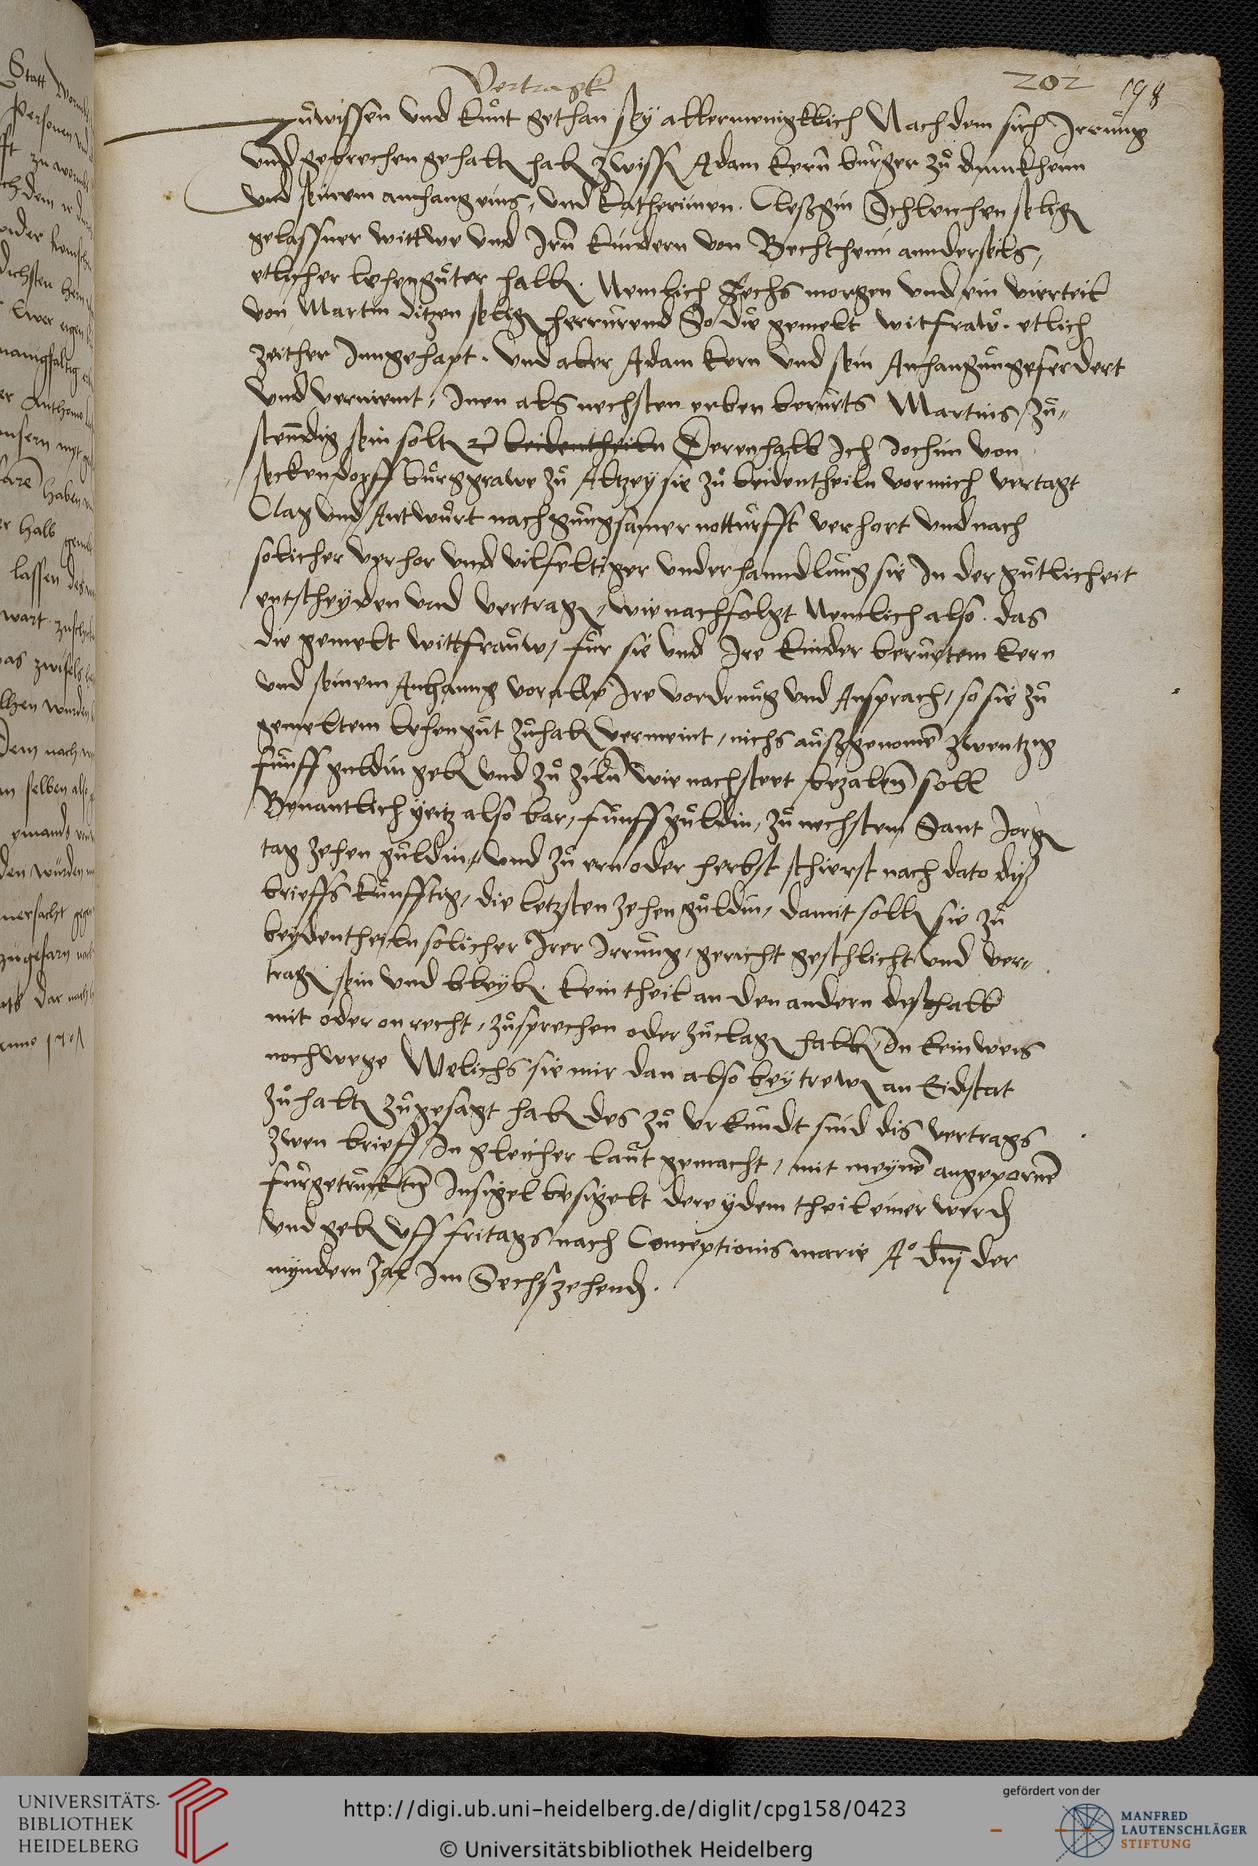 Vertragk
202 198
Zuwissen und kunt gethan sey allermenigklich Nachdem sich Irrung
und gebrechen gehalten haben zwissen Adam Kern burger zu
und seinem anhang eins, und Katherinen. Cleßgin Schleichen seligen
gelassner wittwe und Iren kindern von Bechtheim annderseits,
etlicher lehengüter halben. Nemlich Sechs morgen und ein vierteil
von Martin ditzen seligen herrurend So die gemelt witfraw. etlich
zeither Inngehapt. und aber Adam Kern und sein Anhang ungefordert
und vermeint, Inen als nechsten erben berurts Martins, zu-
stendig sein solten Derenhalb Ich Jochim von
seckendorff burggrave zu Altzey sie zu beidentheiln vor mich vertagt
Clag und Antwurt nach gnugsamer notturfft verhort und nach
solicher verhor und vilfeltiger underhanndlung sie In der gutlicheit
entscheyden und vertragen, wie nachfolgt Nemlich also. das
die gemelt wittfrauw, für sie und Ire kinder berürtem Kern
und seinem Anhanng vor alle Ire vordrung und Ansprach, so sie zu
gemeltem lehengut zuhaben vermeint, nichs außgenomen zwentzig
funff guldin geben und zu ziln wie nachsteet bezalen soll
Benantlich yetz also bar, funff guldin, zu nechstem Sant Jorgen
tag zehen guldin, und zu ern oder herbst schierst nach dato diß
brieffs kunfftig, die letzsten zehen guldin, damit sollen sie zu
beydentheiln solicher Irer Irrung, gericht geschlicht und ver-
tragen sein und bleyben. kein theil an den andern deßhalb
mit oder on recht, zusprechen oder zuclagen haben, In kein weis
noch wege Welichs sie mir dan also bey trewen an Eidstat
zuhalten zugesagt haben des zu urkundt sind dis vertrags
zwen brieff, In gleicher laut gemacht, mit meynem angepornen
furgetruckten Insigel besigelt der yydem theil einer werden
und geben uff fritags nach Conceptionis marie Ao dni der
myndern zal Im Sechszehenden.
UNIVERSITÄTS-
BIBLIOTHEK
HEIDELBERG
http://digi.ub.uni-heidelberg.de/diglit/cpg158/0423
© Universitätsbibliothek Heidelberg
gefördert von der
MANFRED
LAUTENSCHLÄGER
STIFTUNG